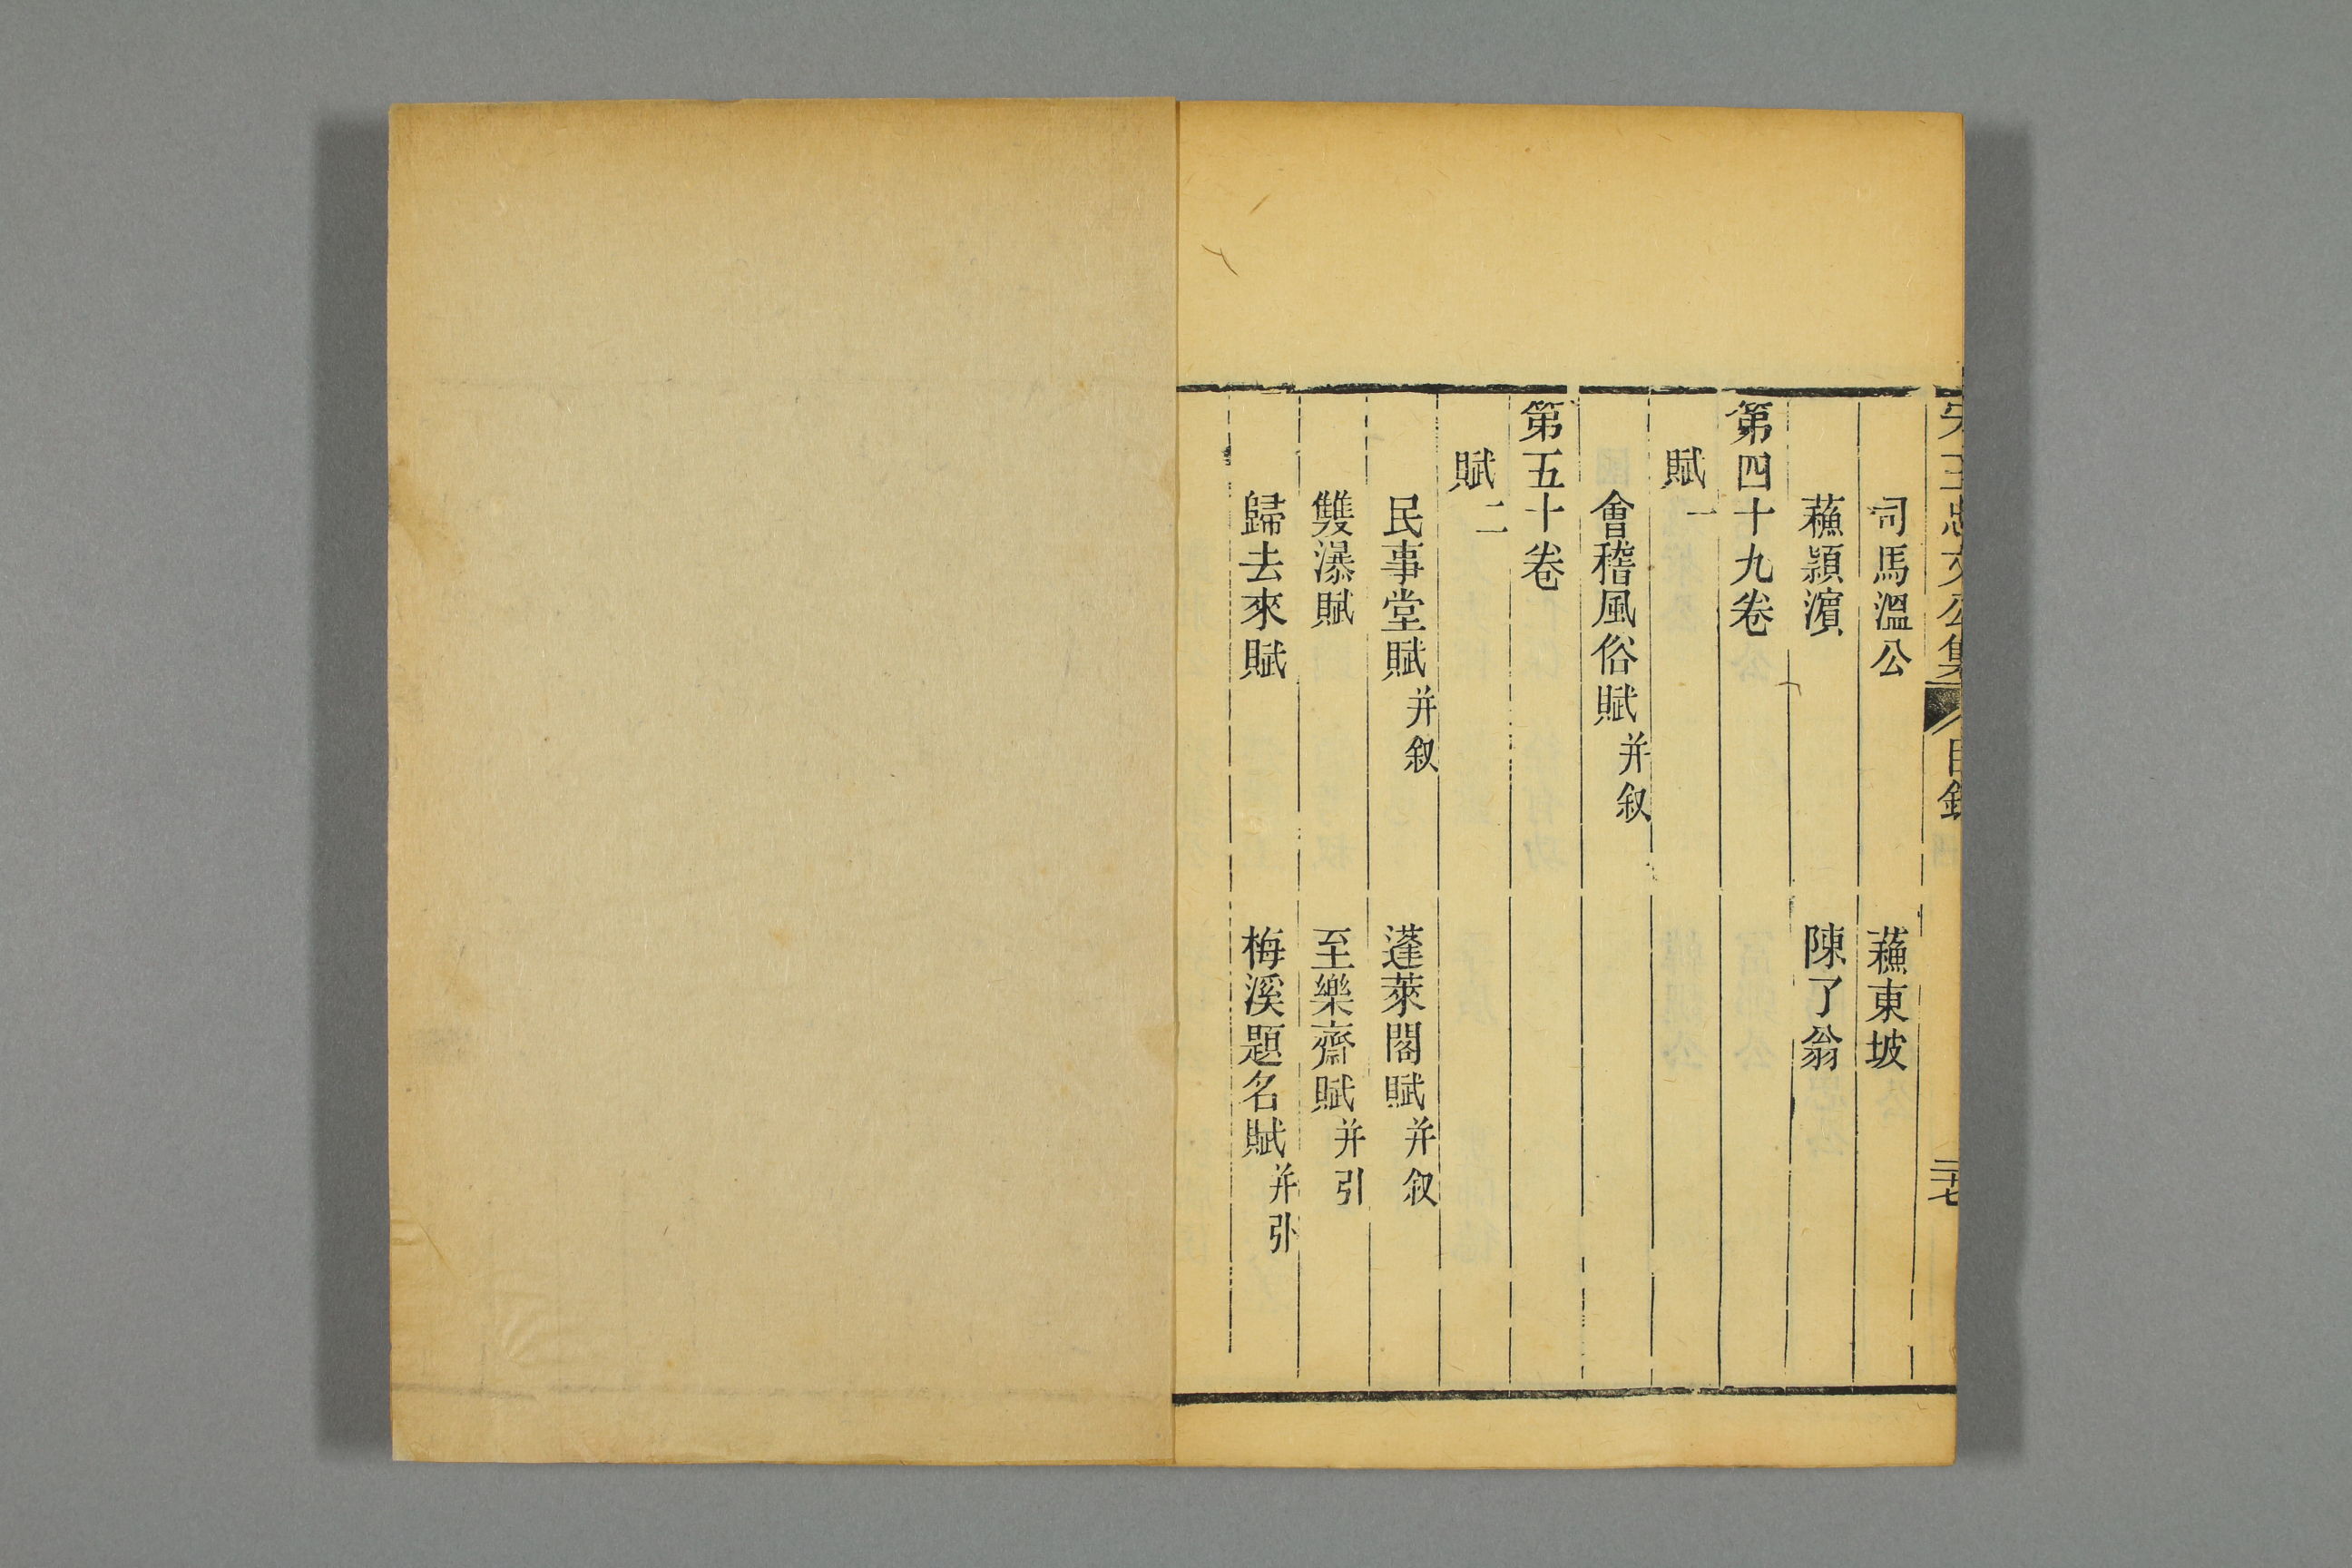 宋王忠文公集 目錄 二十七
司馬溫公 蘓東坡
蘓潁濵 陳了翁
第四十九卷
賦一
會稽風俗賦并叙
第五十卷
賦二
民事堂賦并叙 蓬萊閣賦并叙
雙瀑賦 至樂齋賦并引
歸去來賦 梅溪題名賦并引